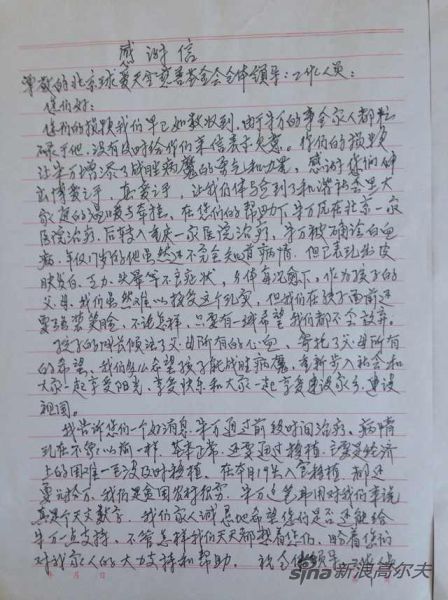 感谢信
尊敬的北京球爱天空慈善基金会全体领导：工作人员：
您们好：
您们的捐赠我们早已如数收到，由于半万的事全家人都忙
碌于他，没有及时给你们来信表示欠意。你们的捐赠
让半万增添了战胜病魔的勇气和力量，感谢您们伸
出博爱之手，真爱之手，让我们体会到了和谐社会大
家庭的温暖与幸福，在您们的帮助下半万在北京一家
医院治疗，后转入重庆一家医院治疗，半万被确诊白血
病，年仅 岁的他虽然还不完全知道病情，但已表现出皮
肤发白、乏力、头晕等不良症状，身体每况愈下。作为孩子的
父母，我们虽然难以接受这个现实，但我们在孩子面前还
要强装笑脸，不论怎样，只要有一线希望我们都不会放弃。
孩子的成长倾注了父母所有的心血，寄托了父母所有
的希望，我们多么希望孩子能战胜病魔，重新步入社会和
大家一起享受阳光，享受快乐和大家一起享受建设家乡，建设
祖国。
我告诉您们一个好消息，半万通过前段时间治疗，病情
现在不象以前一样，基本正常，还要通过移植，主要是经济
上的困难一直没及时移植，在本月19号入仓移植，都还
要 拾万，我们是贫困农村低穷，半万这笔费用对我们来说
真是个天文数字，我们家人诚恳地希望您们是否还能给
半万一点支持，不管怎样我们天天都想着您们，盼着您们
对我家人的大力支持和帮助。祝全体领导
年 月 日
sina新浪高尔夫